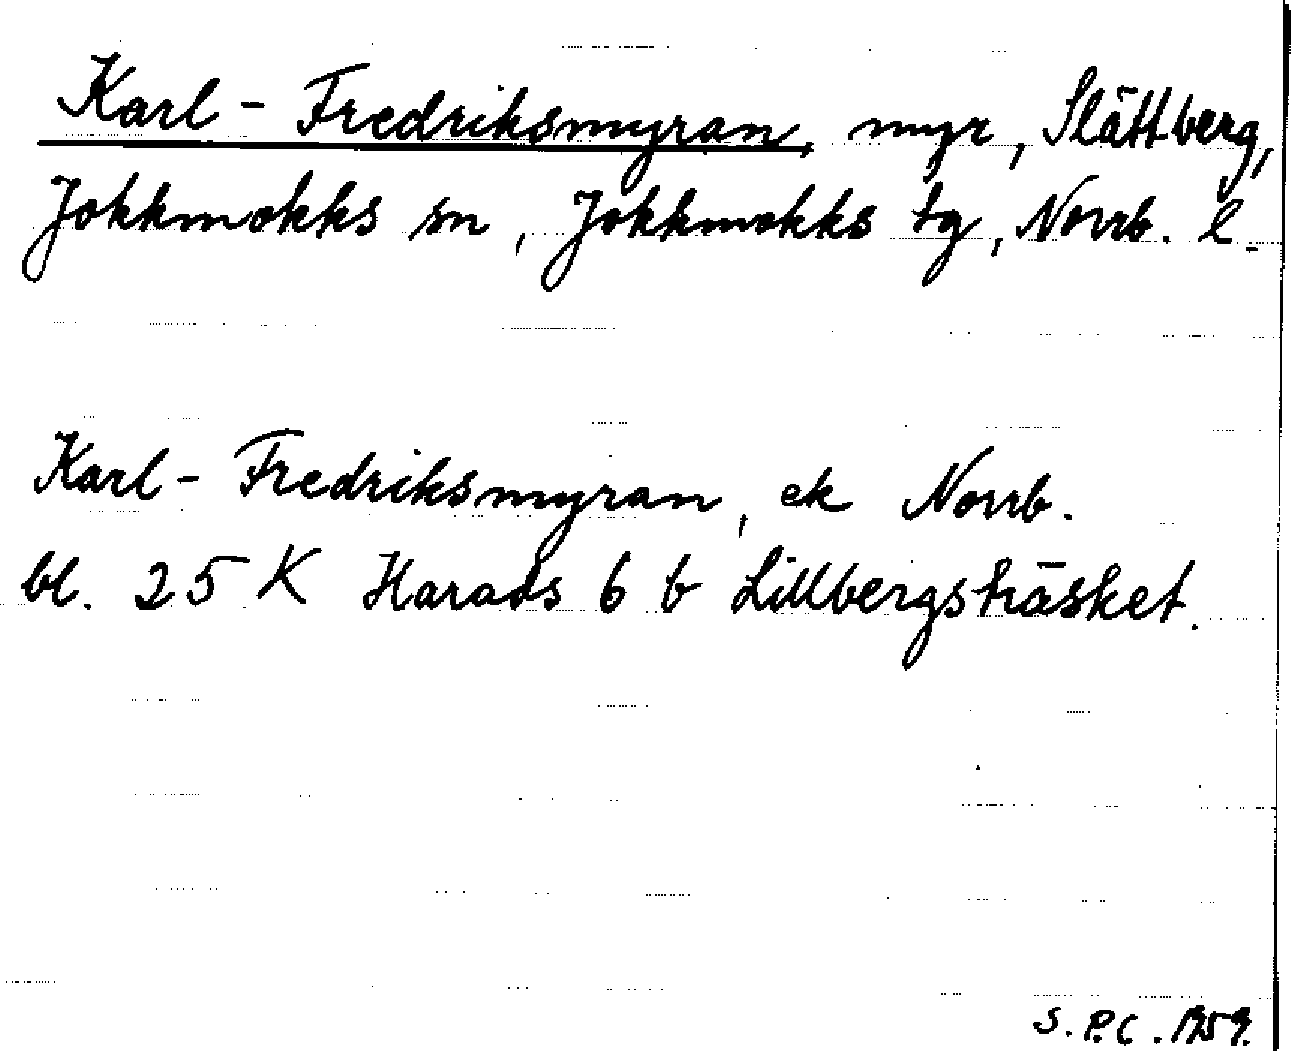 Karl-Fredriksmyran, myr, Slättberg,
Jokkmokks sn, Jokkmokks tg, Norrb. l.
Karl-Fredriksmyran, ek Norrb.
bl. 25 K Harads 6 b Lillbergsträsket.
S.P.C. 1959.